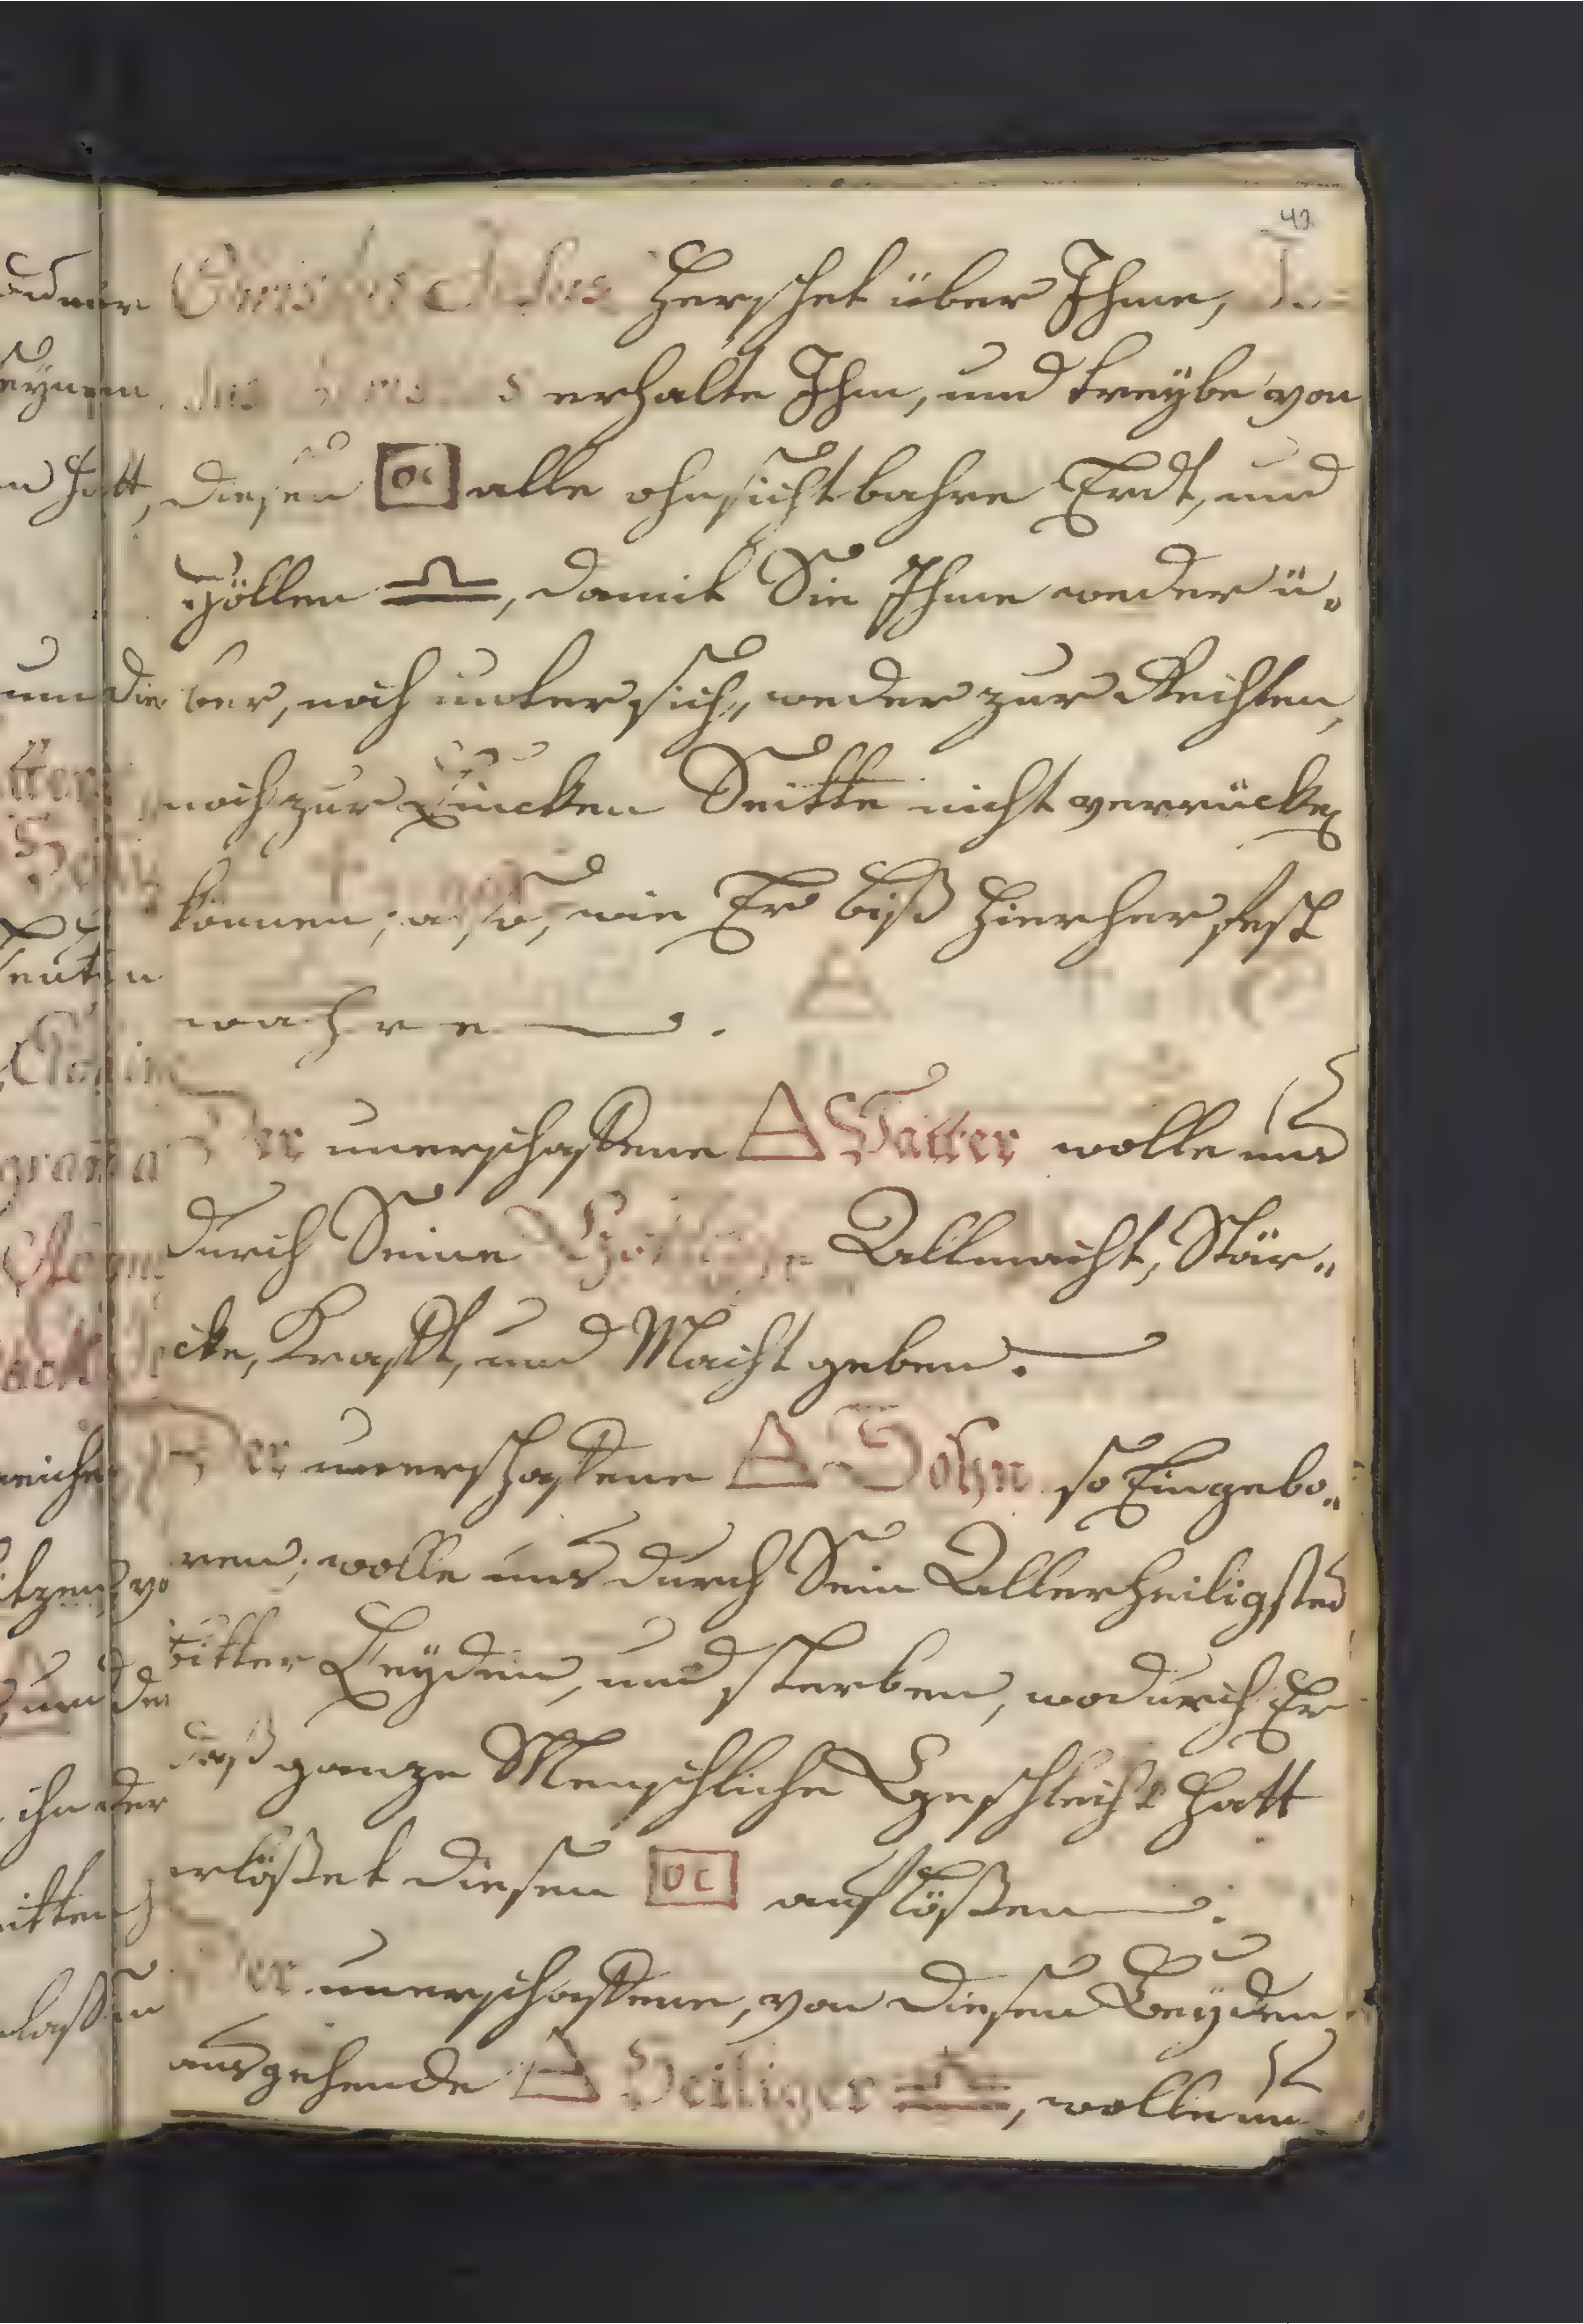 42
Christus Jesus Herschet über Ihme,
erhalte Ihm, und treÿbe von
diesen [OC] alle ohnsichtbahre Erdt, und
Höllen ♎, damit Sie Ihme weder ü„
ber, noch unter sich, weder zur Rechten,
noch zur Lincken Seitte nicht verrücken
können; also, wie Er biß hierher fest
wahre.
Der unerschaffene △ Vatter wolle uns
durch Seine Göttliche Allmacht, Stär„
cke, Krafft, und Macht geben.
Der unerschaffene △ Sohn so Eingebo„
ren; wolle uns durch Sein Allerheiligstes
bitter Leyden, und sterben, wodurch Er
daß ganze Menschliche Geschlecht hatt
erlößet diesen [OC] auflößen.
Der unerschaffene, von diesen Beÿden
ausgehende △ Heiliger ♎, wolle uns